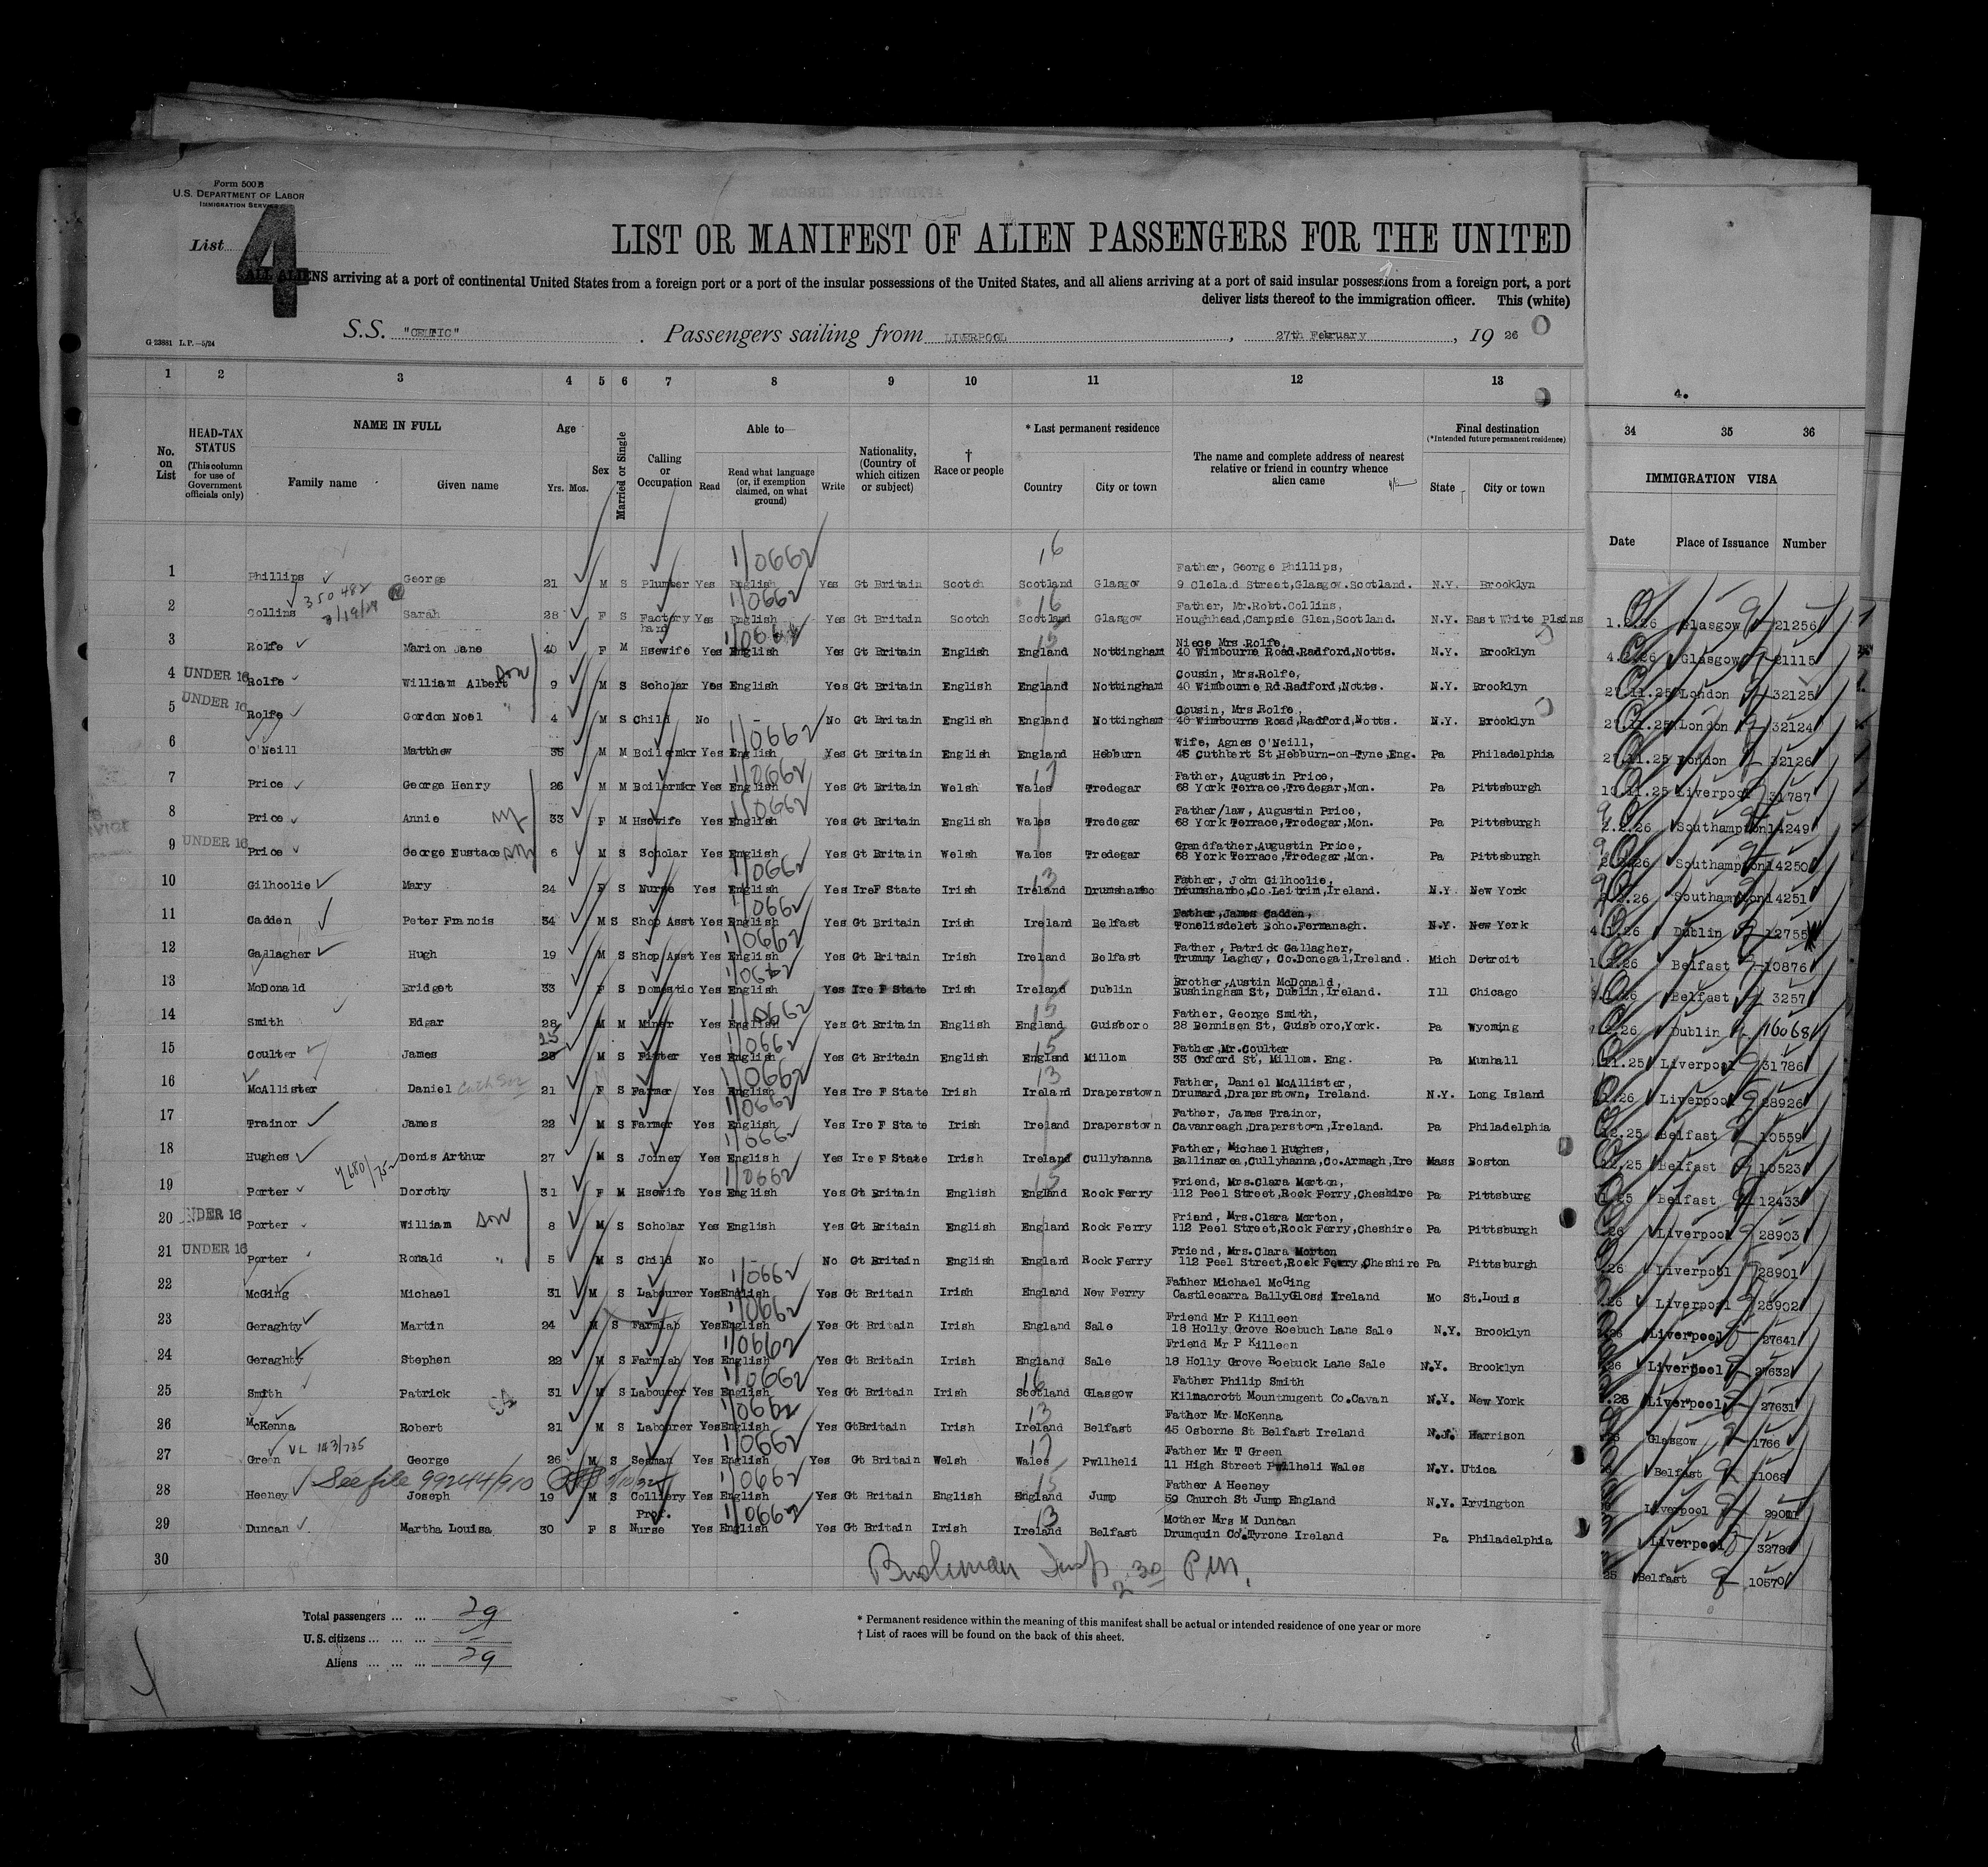 Form 500 B
U.S. DEPARTMENT OF LABOR
IMMIGRATION SERVICE
List 4
LIST OR MANIFEST OF ALIEN PASSENGERS FOR THE UNITED
ALL ALIENS arriving at a port of continental United States from a foreign port or a port of the insular possessions of the United States, and all aliens arriving at a port of said insular possessions from a foreign port, a port
deliver lists thereof to the immigration officer. This (white)
S.S. "CELTIC" . Passengers sailing from LIVERPOOL, 27th February, 19 26
G 23881 L.P.—5/24
4.
1 2 3 4 5 6 7 8 9 10 11 12 13 34 35 36
No. on List
HEAD-TAX STATUS (This column for use of Government officials only)
NAME IN FULL Family name Given name
Age Yrs. Mos.
Sex
Married or Single
Calling or Occupation
Able to— Read Read what language (or, if exemption claimed, on what ground) Write
Nationality, (Country of which citizen or subject)
† Race or people
* Last permanent residence Country City or town
The name and complete address of nearest relative or friend in country whence alien came
Final destination (*Intended future permanent residence) State City or town
IMMIGRATION VISA Date Place of Issuance Number
1 Phillips George 21 M S Plumber Yes English Yes Gt Britain Scotch Scotland Glasgow Father, George Phillips, 9 Cleland Street,Glasgow.Scotland. N.Y. Brooklyn
2 Collins 350482 Sarah 28 F S Factory hand Yes English Yes Gt Britain Scotch Scotland Glasgow Father, Mr.Robt.Collins, Houghhead,Campsie Glen,Scotland. N.Y. East White Plains 1.2.26 Glasgow 21256
3 Rolfe Marion Jane 40 F M Hsewife Yes English Yes Gt Britain English England Nottingham Niece Mrs Rolfe, 40 Wimbourne Road.Radford,Notts. N.Y. Brooklyn Glasgow 21115
4 UNDER 16 Rolfe William Albert son 9 M S Scholar Yes English Yes Gt Britain English England Nottingham Cousin, Mrs.Rolfe, 40 Wimbourne Rd.Radford,Notts. N.Y. Brooklyn 27.11.25 London 32125
5 UNDER 16 Rolfe Gordon Noel " 4 M S Child No - No Gt Britain English England Nottingham Cousin, Mrs Rolfe, 40 Wimbourne Road,Radford,Notts. N.Y. Brooklyn 27.11.25 London 32124
6 O'Neill Matthew 35 M M Boilermkr Yes English Yes Gt Britain English England Hebburn Wife, Agnes O'Neill, 45 Cuthbert St,Hebburn-on-Tyne,Eng. Pa Philadelphia 27.11.25 London 32126
7 Price George Henry 26 M M Boilermkr Yes English Yes Gt Britain Welsh Wales Tredegar Father, Augustin Price, 68 York Terrace,Tredegar,Mon. Pa Pittsburgh Liverpool 31787
8 Price Annie 33 F M Hsewife Yes English Yes Gt Britain English Wales Tredegar Father/law, Augustin Price, 68 York Terrace,Tredegar,Mon. Pa Pittsburgh 2.2.26 Southampton 14249
9 UNDER 16 Price George Eustace son 6 M S Scholar Yes English Yes Gt Britain Welsh Wales Tredegar Grandfather,Augustin Price, 68 York Terrace,Tredegar,Mon. Pa Pittsburgh 2.2.26 Southampton 14250
10 Gilhoolie Mary 24 F S Nurse Yes English Yes IreF State Irish Ireland Drumshambo Father, John Gilhoolie, Drumshambo,Co.Leitrim,Ireland. N.Y New York 2.2.26 Southampton 14251
11 Cadden Peter Francis 34 M S Shop Asst Yes English Yes Gt Britain Irish Ireland Belfast Father,James Cadden, Tonelisdelet Boho.Fermanagh. N.Y. New York Dublin 12755
12 Gallagher Hugh 19 M S Shop Asst Yes English Yes Gt Britain Irish Ireland Belfast Father, Patrick Gallagher, Trummy Laghey, Co.Donegal,Ireland. Mich Detroit Belfast 10876
13 McDonald Bridget 33 F S Domestic Yes English Yes Ire F State Irish Ireland Dublin Brother,Austin McDonald, Bushingham St, Dublin,Ireland. Ill Chicago Belfast 3257
14 Smith Edgar 28 M M Miner Yes English Yes Gt Britain English England Guisboro Father, George Smith, 28 Bennison St, Guisboro,York. Pa Wyoming Dublin 16068
15 Coulter James 25 M S Fitter Yes English Yes Gt Britain English England Millom Father,Mr.Coulter 33 Oxford St, Millom. Eng. Pa Munhall Liverpool 31786
16 McAllister Daniel 21 F S Farmer Yes English Yes Ire F State Irish Ireland Draperstown Father, Daniel McAllister, Drumard,Draperstown, Ireland. N.Y. Long Island Liverpool 28926
17 Trainor James 22 M S Farmer Yes English Yes Ire F State Irish Ireland Draperstown Father, James Trainor, Cavanreagh,Draperstown,Ireland. Pa Philadelphia Belfast 10559
18 Hughes Denis Arthur 27 M S Joiner Yes English Yes Ire F State Irish Ireland Cullyhanna Father, Michael Hughes, Ballinarea,Cullyhanna,Co.Armagh,Ire Mass Boston Belfast 10523
19 Porter Dorothy 31 F M Hsewife Yes English Yes Gt Britain English England Rock Ferry Friend, Mrs.Clara Morton, 112 Peel Street,Rock Ferry,Cheshire Pa Pittsburg Belfast 12433
20 UNDER 16 Porter William son 8 M S Scholar Yes English Yes Gt Britain English England Rock Ferry Friend, Mrs.Clara Morton, 112 Peel Street,Rock Ferry,Cheshire Pa Pittsburgh Liverpool 28903
21 UNDER 16 Porter Ronald " 5 M S Child No - No Gt Britain English England Rock Ferry Friend, Mrs.Clara Morton 112 Peel Street,Rock Ferry,Cheshire Pa Pittsburgh Liverpool 28901
22 McGing Michael 31 M S Labourer Yes English Yes Gt Britain Irish England New Ferry Father Michael McGing Castlecarra BallyGloss Ireland Mo St.Louis Liverpool 28902
23 Geraghty Martin 24 M S Farmlab Yes English Yes Gt Britain Irish England Sale Friend Mr P Killeen 18 Holly Grove Roebuch Lane Sale N.Y. Brooklyn Liverpool 27641
24 Geraghty Stephen 22 M S Farmlab Yes English Yes Gt Britain Irish England Sale Friend Mr P Killeen 18 Holly Grove Roebuck Lane Sale N.Y. Brooklyn Liverpool 27632
25 Smith Patrick 31 M S Labourer Yes English Yes Gt Britain Irish Scotland Glasgow Father Philip Smith Kilnacrott Mountnugent Co.Cavan N.Y. New York Liverpool 27631
26 McKenna Robert 21 M S Labourer Yes English Yes GtBritain Irish Ireland Belfast Father Mr McKenna 45 Osborne St Belfast Ireland N.J. Harrison Glasgow 1766
27 Green VL 143/735 George 26 M S Seaman Yes English Yes Gt Britain Welsh Wales Pwllheli Father Mr T Green 11 High Street Pwllheli Wales N.Y. Utica Belfast 11068
See file 99244/910
28 Heeney Joseph 19 M S Colliery Yes English Yes Gt Britain English England Jump Father A Heeney 59 Church St Jump England N.Y. Irvington Liverpool
29 Duncan Martha Louisa 30 F S Prof. Nurse Yes English Yes Gt Britain Irish Ireland Belfast Mother Mrs M Duncan Drumquin Co.Tyrone Ireland Pa Philadelphia Liverpool 32786
30 Belfast 10570
2.30 Pm.
Total passengers ... ... 29
U.S. citizens ... ... ... –
Aliens ... ... ... 29
* Permanent residence within the meaning of this manifest shall be actual or intended residence of one year or more
† List of races will be found on the back of this sheet.